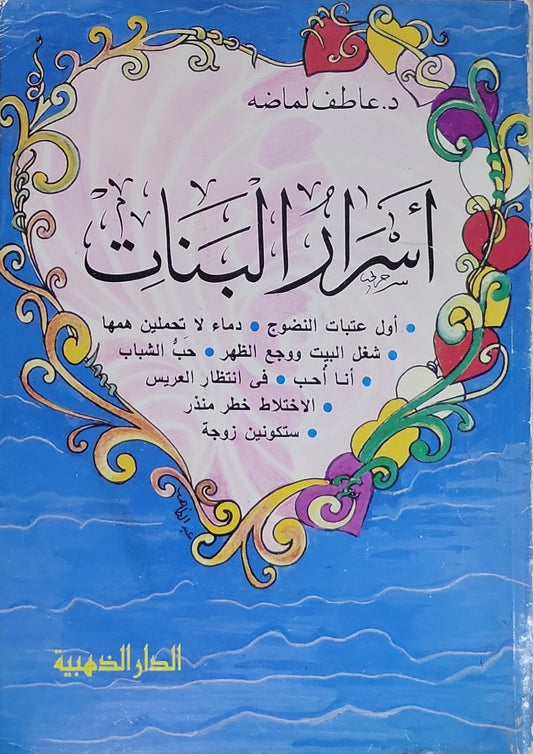 د. عاطف لماضه
أسرار البنات
• أول عتبات النضوج • دماء لا تحملين همها
• شغل البيت ووجع الظهر • حَبُّ الشباب
• أنا أُحب • فى انتظار العريس
• الاختلاط خطر منذر
• ستكونين زوجة
الدار الذهبية